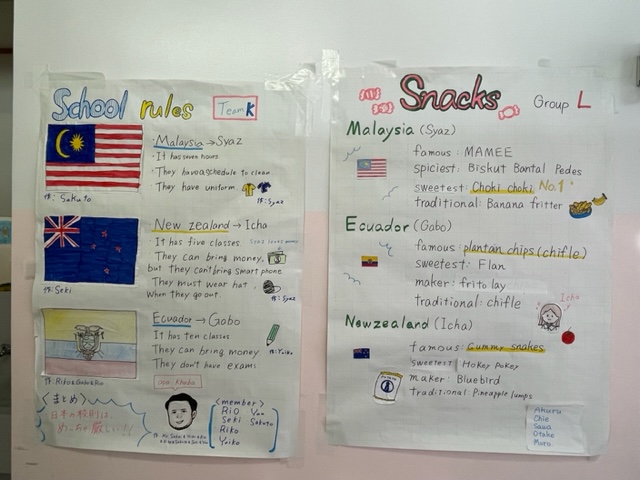 School rules
Team K
Malaysia → Syaz
・It has seven hours
・They have a schedule to clean
・They have uniform
作: Sakuto
作: Syaz
New zealand → Icha
・It has five classes
・They can bring money,
but they can't bring smart phone
・They must wear hat
when they go out.
作: Seki
作: Syaz
Ecuador → Gabo
・It has ten classes
・They can bring money
・They don't have exams
作: Yuiko
<まとめ>
日本の校則は、
めっちゃ厳しい!!
<member>
Rio
Seki Sakuto
Riko
Yuiko
Snacks
Group L
Malaysia (Syaz)
famous: MAMEE
spiciest: Biskut Bantal Pedes
sweetest: Choki choki No.1
traditional: Banana fritter
Ecuador (Gabo)
famous: plantain chips (chifle)
sweetest: Flan
maker: frito lay
traditional: chifle
Icha
Newzealand (Icha)
famous: Gummy snakes
sweetest: Hokey Pokey
maker: Bluebird
traditional: Pineapple lumps
Chie
Sawa
Otoke